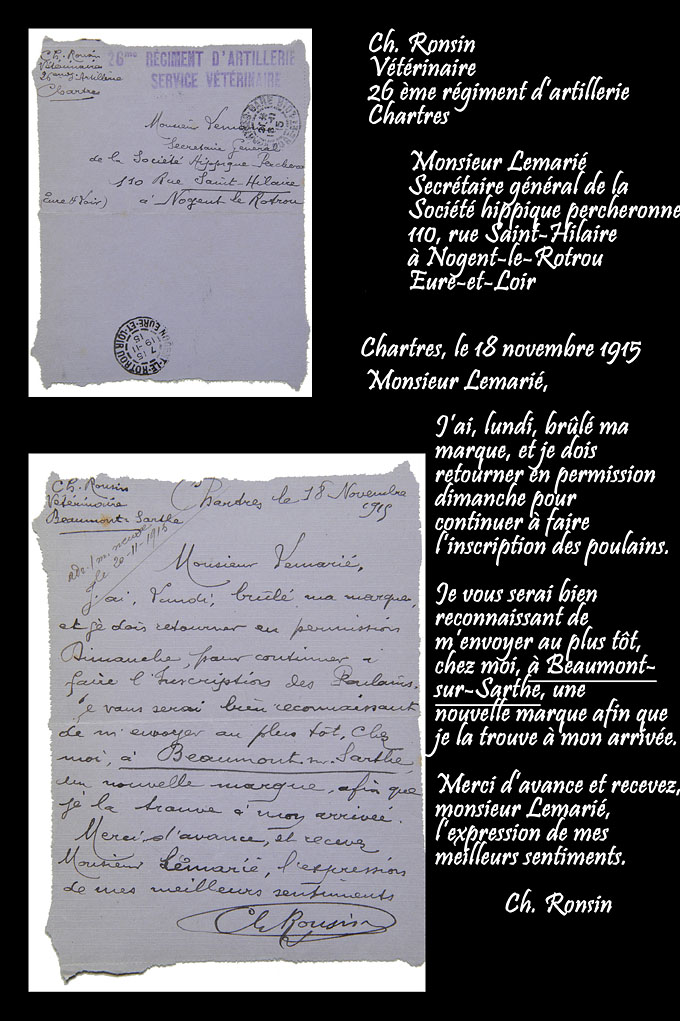 Ch. Ronsin
Vétérinaire
26ème d'Artillerie
Chartres
26me RÉGIMENT D'ARTILLERIE
SERVICE VÉTÉRINAIRE
Monsieur Lemarié
Secretaire Général
de la Société Hippique Percheronne
110 Rue Saint-Hilaire
Eure & Loir) à Nogent le Rotrou
Ch. Ronsin
Vétérinaire
26 ème régiment d'artillerie
Chartres
Monsieur Lemarié
Secrétaire général de la
Société hippique percheronne
110, rue Saint-Hilaire
à Nogent-le-Rotrou
Eure-et-Loir
Ch. Ronsin
Vétérinaire
Beaumont s. Sarthe
Chartres le 18 Novembre
1915
20-11-1915
Monsieur Lemarié,
j'ai, Lundi, brûlé ma marque,
et je dois retourner en permission
Dimanche, pour continuer à
faire l'Inscription des Poulains.
Je vous serai bien reconnaissant
de m'envoyer au plus tôt, chez
moi, à Beaumont-sur-Sarthe,
une nouvelle marque, afin que
je la trouve à mon arrivée.
Merci, d'avance, et recevez
Monsieur Lemarié, l'expression
de mes meilleurs sentiments
Ch Ronsin
Chartres, le 18 novembre 1915
Monsieur Lemarié,
J'ai, lundi, brûlé ma
marque, et je dois
retourner en permission
dimanche pour
continuer à faire
l'inscription des poulains.
Je vous serai bien
reconnaissant de
m'envoyer au plus tôt,
chez moi, à Beaumont-
sur-Sarthe, une
nouvelle marque afin que
je la trouve à mon arrivée.
Merci d'avance et recevez,
monsieur Lemarié,
l'expression de mes
meilleurs sentiments.
Ch. Ronsin